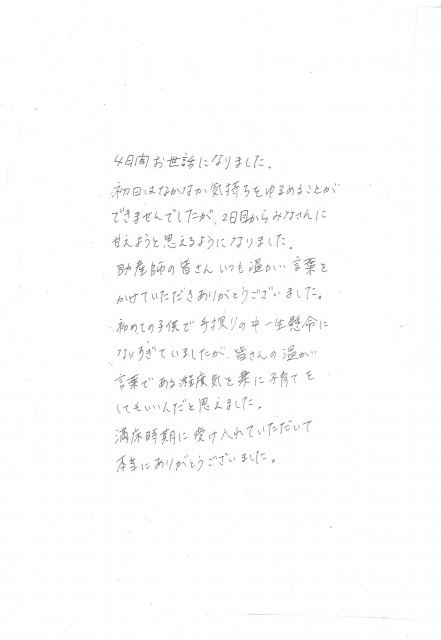 4日間お世話になりました。
初日はなかなか気持ちをゆるめることが
できませんでしたが、2日目からみなさんに
甘えようと思えるようになりました。
助産師の皆さんいつも温かい言葉を
かけていただきありがとうございました。
初めての子供で手探りの中一生懸命に
なりすぎていましたが、皆さんの温かい
言葉である程度気を楽に子育てを
してもいいんだと思えました。
満床時期に受け入れていただいて
本当にありがとうございました。